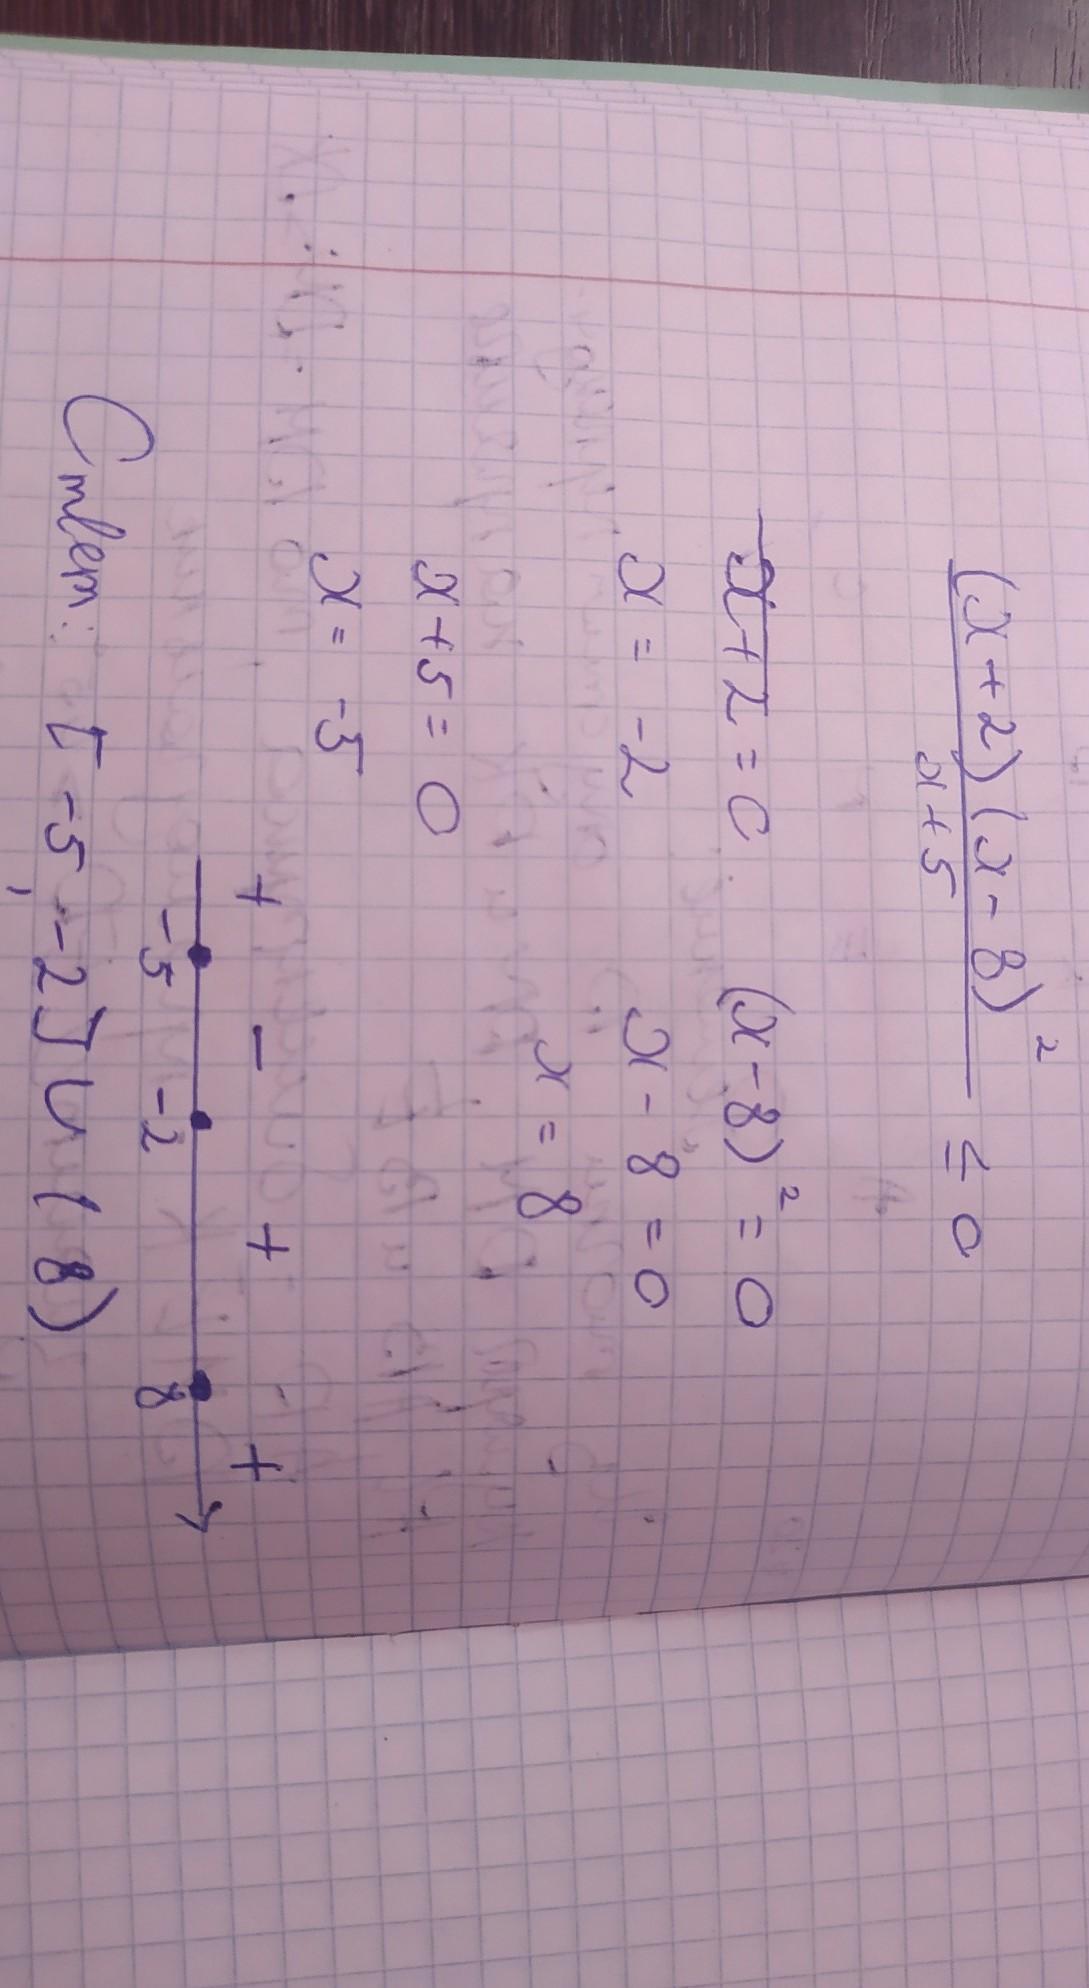 (x+2)(x-8)²
x+5
≤ 0
x+2=0 (x-8)²=0
x = -2 x - 8 = 0
x = 8
x+5=0
x = -5
+ - + +
-5 -2 8
Ответ: [-5, -2] ∪ (8)